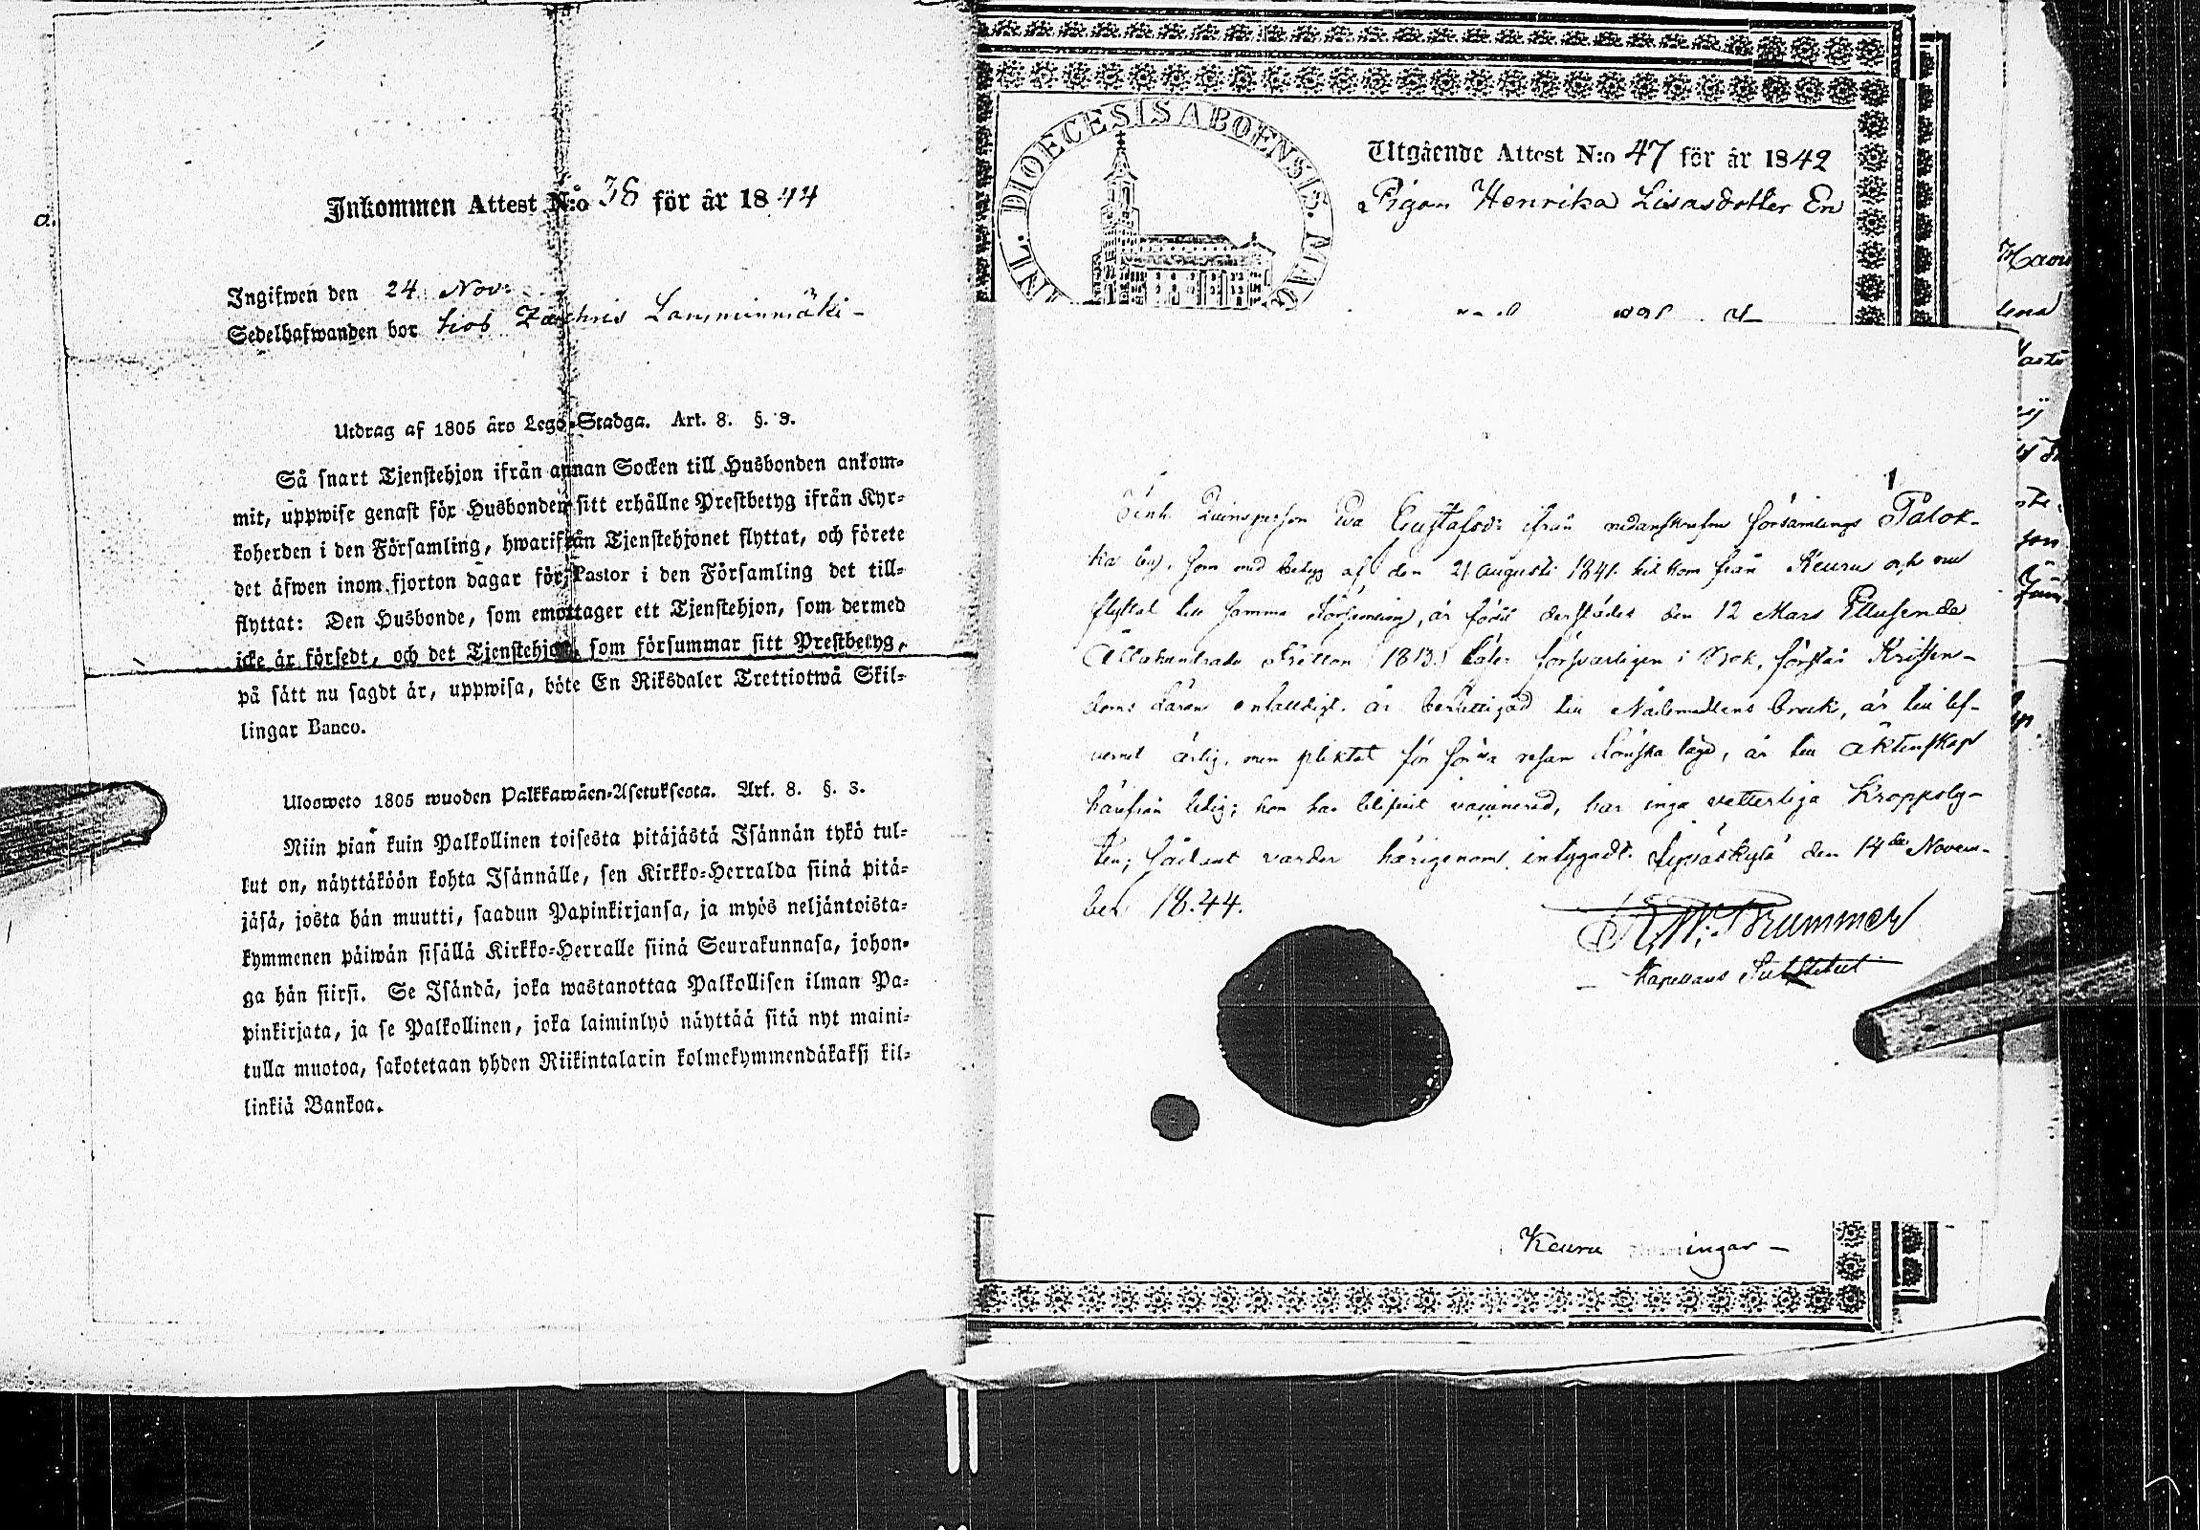 a.
Inkommen Attest N:o 38 för år 1844
Ingifwen den 24 Nov:
Sedelhafwanden bor hos Zachris Lamminmäki -
Utdrag af 1805 års Lego-Stadga. Art. 8. §. 3.
Så snart Tjenstehjon ifrån annan Socken till Husbonden ankom-
mit, uppwise genast för Husbonden sitt erhållne Prestbetyg ifrån Kyr-
koherden i den Församling, hwarifrån Tjenstehjonet flyttat, och förete
det äfwen inom fjorton dagar för Pastor i den Församling det till-
flyttat: Den Husbonde, som emottager ett Tjenstehjon, som dermed
icke är försedt, och det Tjenstehjon, som försummar sitt Prestbetyg,
på sätt nu sagdt är, uppwisa, böte En Riksdaler Trettiotwå Skil-
lingar Banco.
Ulosweto 1805 wuoden Palkkawäen-Asetuksesta. Art. 8. §. 3.
Niin pian kuin Palkollinen toisesta pitäjästä Isännän tykö tul-
lut on, näyttäköön kohta Isännälle, sen Kirkko-Herralda siinä pitä-
jäsä, josta hän muutti, saadun Papinkirjansa, ja myös neljäntoista-
kymmenen päiwän sisällä Kirkko-Herralle siinä Seurakunnasa, johon-
ga hän siirsi. Se Isändä, joka wastanottaa Palkollisen ilman Pa-
pinkirjata, ja se Palkollinen, joka laiminlyö näyttää sitä nyt maini-
tulla muotoa, sakotetaan yhden Riikintalarin kolmekymmendäkaksi kil-
linkiä Bankoa.
DIOECESIS ABOENSIS. MAG
Utgående Attest N:o 47 för år 1842
Pigan Henrika Lisasdotter En
Qvinsperson Eva Gustafsdr ifrån nedanskrefne församlings Palok-
ka by, som med betyg af den 21 Augusti 1841 hit kom från Keuru och nu
flyttat till samma församling, är född derstädes den 12 Mars Ettusende
Åttahundrade Tretton (1813) läser försvarligen i Bok, förstår Kristen-
doms Läran enfaldigt, är berättigad till Nådemedlens bruk, är till lef-
vernet ärlig, men pliktat för första resan lönska läge, är till äktenskap
härifrån ledig; hon har blifvit vaccinerad, har inga vetterliga kroppsly-
ten; sådant varder härigenom intygadt. Jyväskylä den 14de Novem-
ber 1844.
Brummer
Kapellans Substitut
Keuru